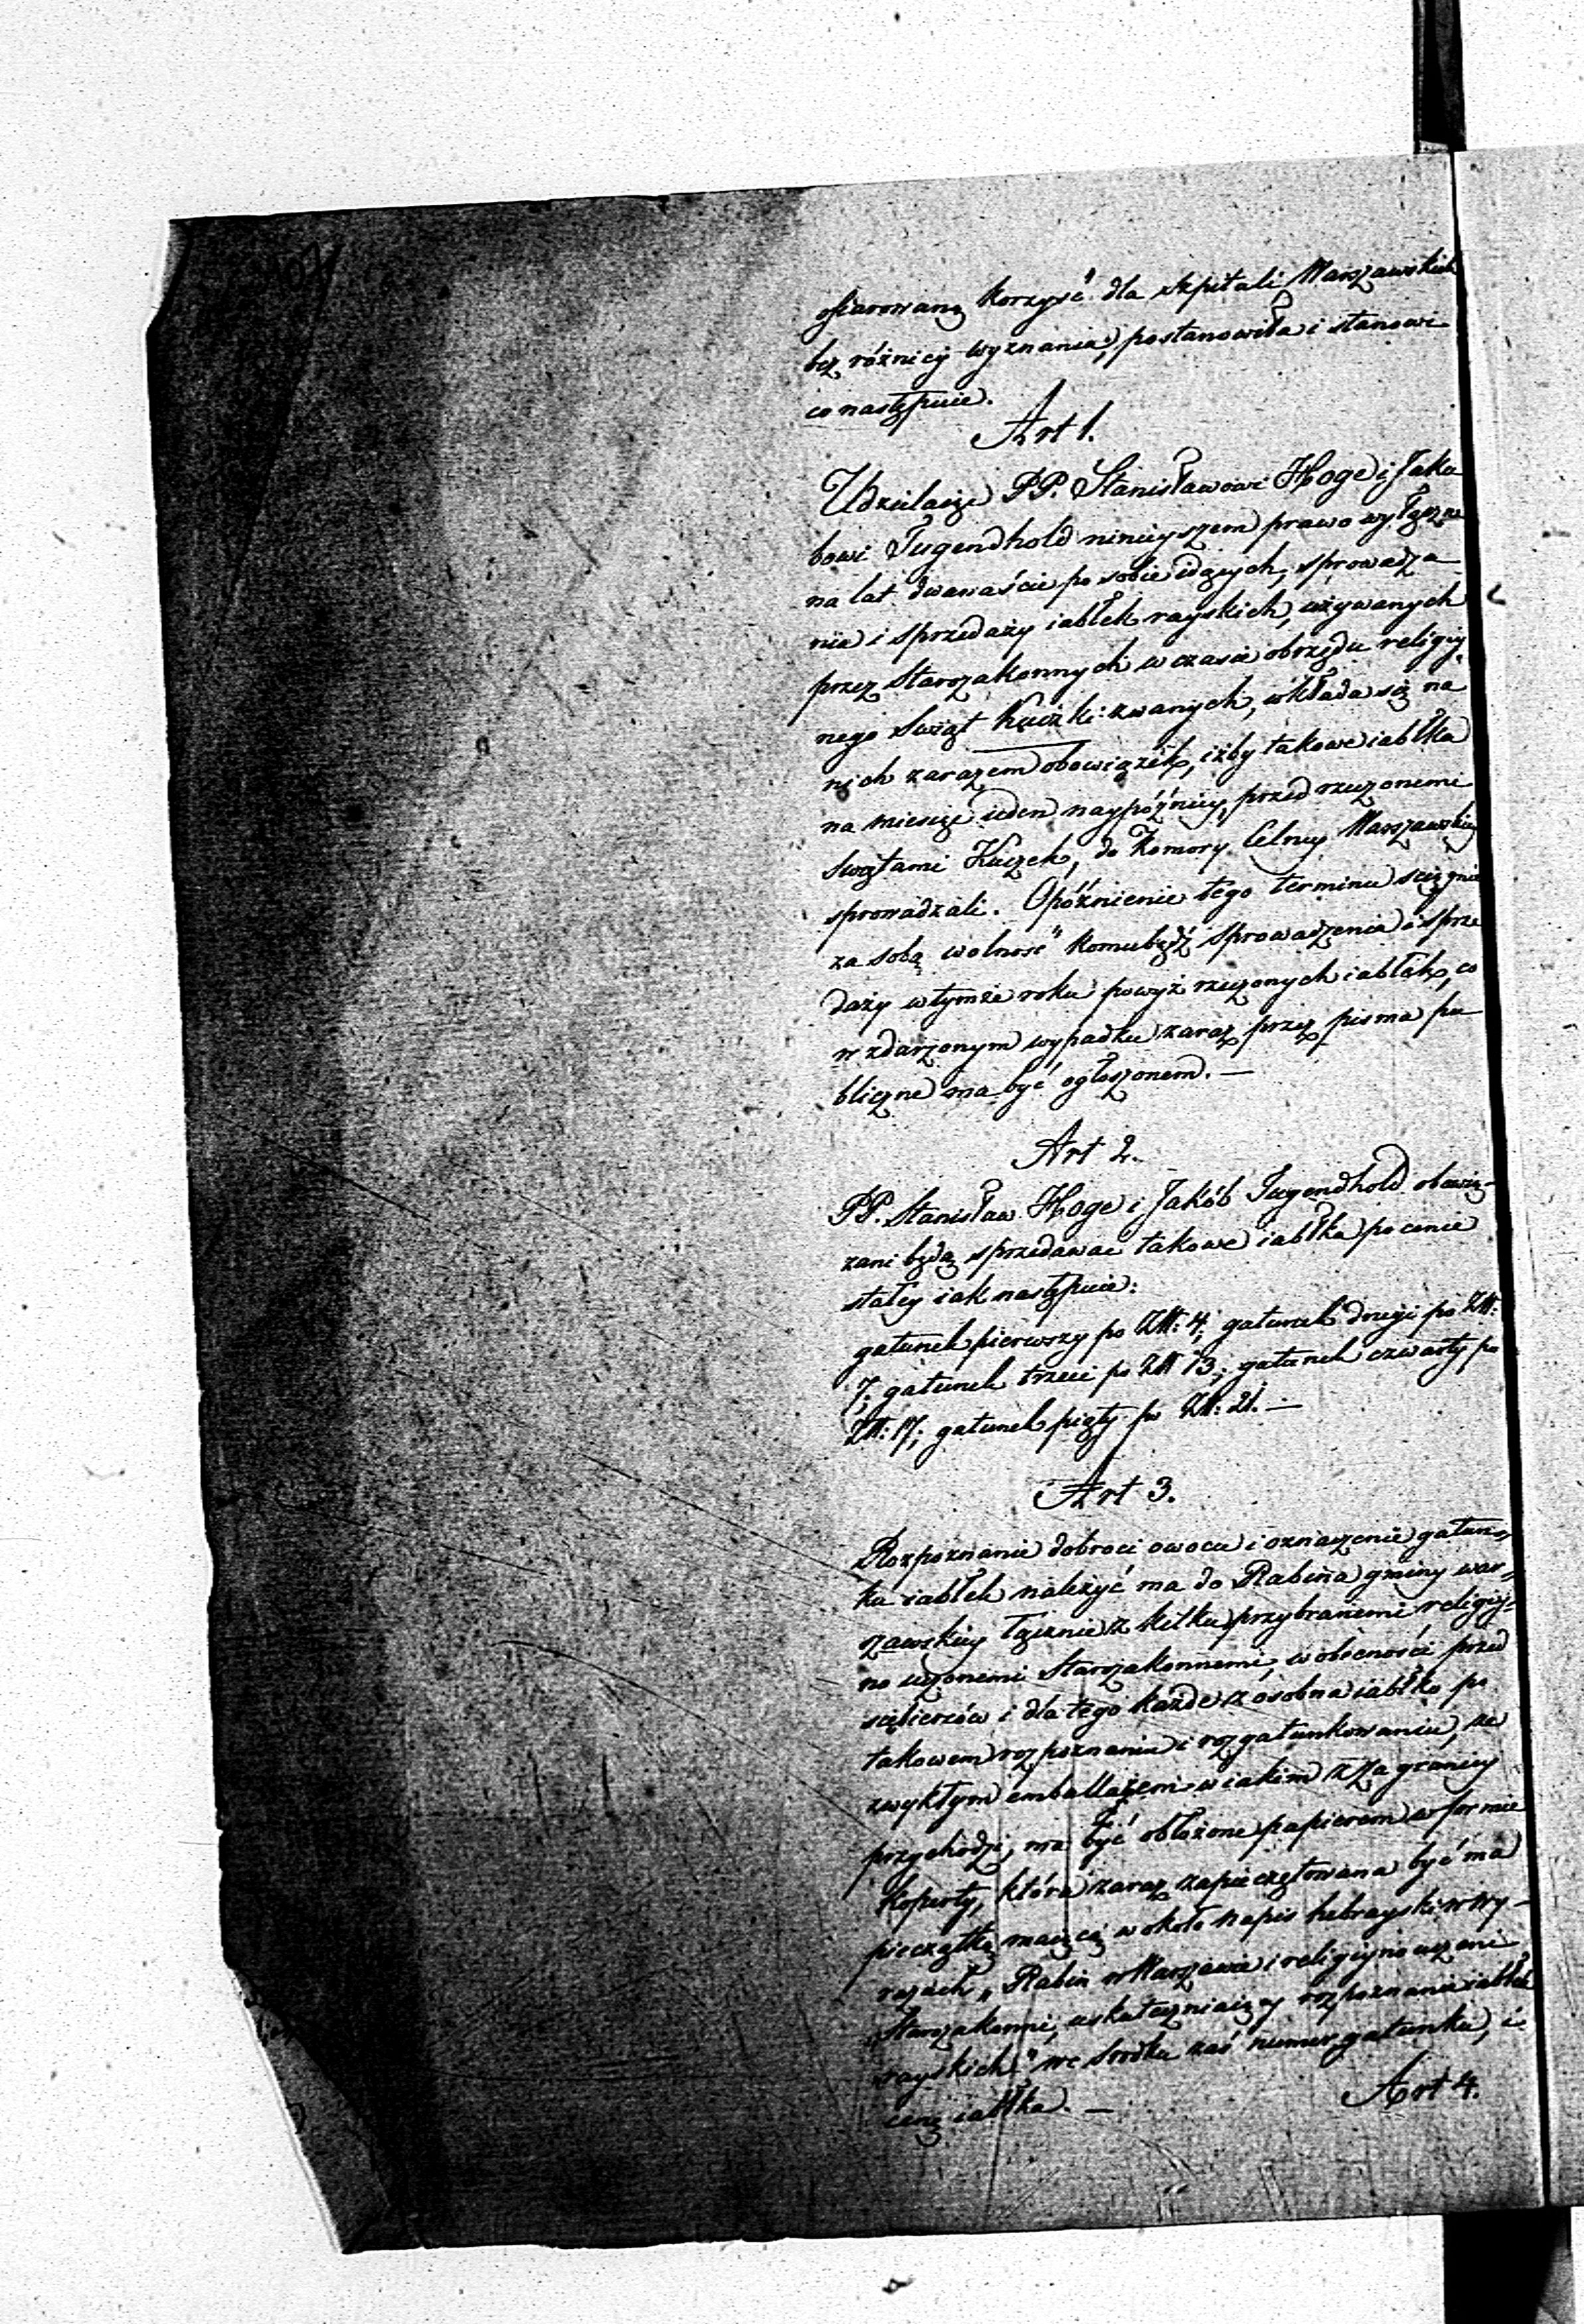 ofiarowaną korzyść dla szpitali Warszawskich
bez różnicy wyznania, postanowiła i stanowi
co następuie.
Art 1.
Udzielaiąc PP. Stanisławowi Hoge i Jaku
bowi Tugendhold ninieyszem prawo wyłączne
na lat dwanaście po sobie idących, sprowadza
nia i sprzedaży iabłek rayskich, używanych
przez Starozakonnych w czasie obrzędu religiy
nego Swiąt Kuczki zwanych, wkłada się na
nich zarazem obowiązek, iżby takowe iabłka
na miesiąc ieden naypóźniey, przed rzeczonemi
Swiętami Kuczek, do Komory Celney Warszawskiey
sprowadzali. Opóźnienie tego terminu sciągnie
za sobą wolność komubądź sprowadzenia i sprze
daży w tymże roku powyż rzeczonych iabłek, co
w zdarzonym wypadku zaraz przez pisma pu
bliczne ma być ogłoszonem. —
Art 2.
PP. Stanisław Hoge i Jakób Tugendhold obowią-
zani będą sprzedawać takowe iabłka po cenie
stałey iak następuie:
gatunek pierwszy po Złt: 4; gatunek drugi po Złt:
7; gatunek trzeci po Złt 13; gatunek czwarty po
Złt: 17; gatunek piąty po Złt: 21. —
Art 3.
Rozpoznanie dobroci owocu i oznaczenie gatun-
ku iabłek należyć ma do Rabina gminy war-
szawskiey łącznie z kilku przybranemi religiy-
no uczonemi Starozakonnemi, w obecności przed
siębierców i dla tego każde z osobna iabłko po
takowem rozpoznaniu i rozgatunkowaniu, ze
zwykłym emballażem w iakim z zagranicy
przychodzi, ma być obłożone papierem w formie
koperty, która zaraz zapieczętowana być ma
pieczątką maiącą w około napis hebrayski w wy-
razach „Rabin w Warszawie i religiyno uczeni
„Starozakonni, uskuteczniaiący rozpoznanie iabłek
rayskich" we środku zaś numer gatunku, i
cenę iabłka. —
Art 4.